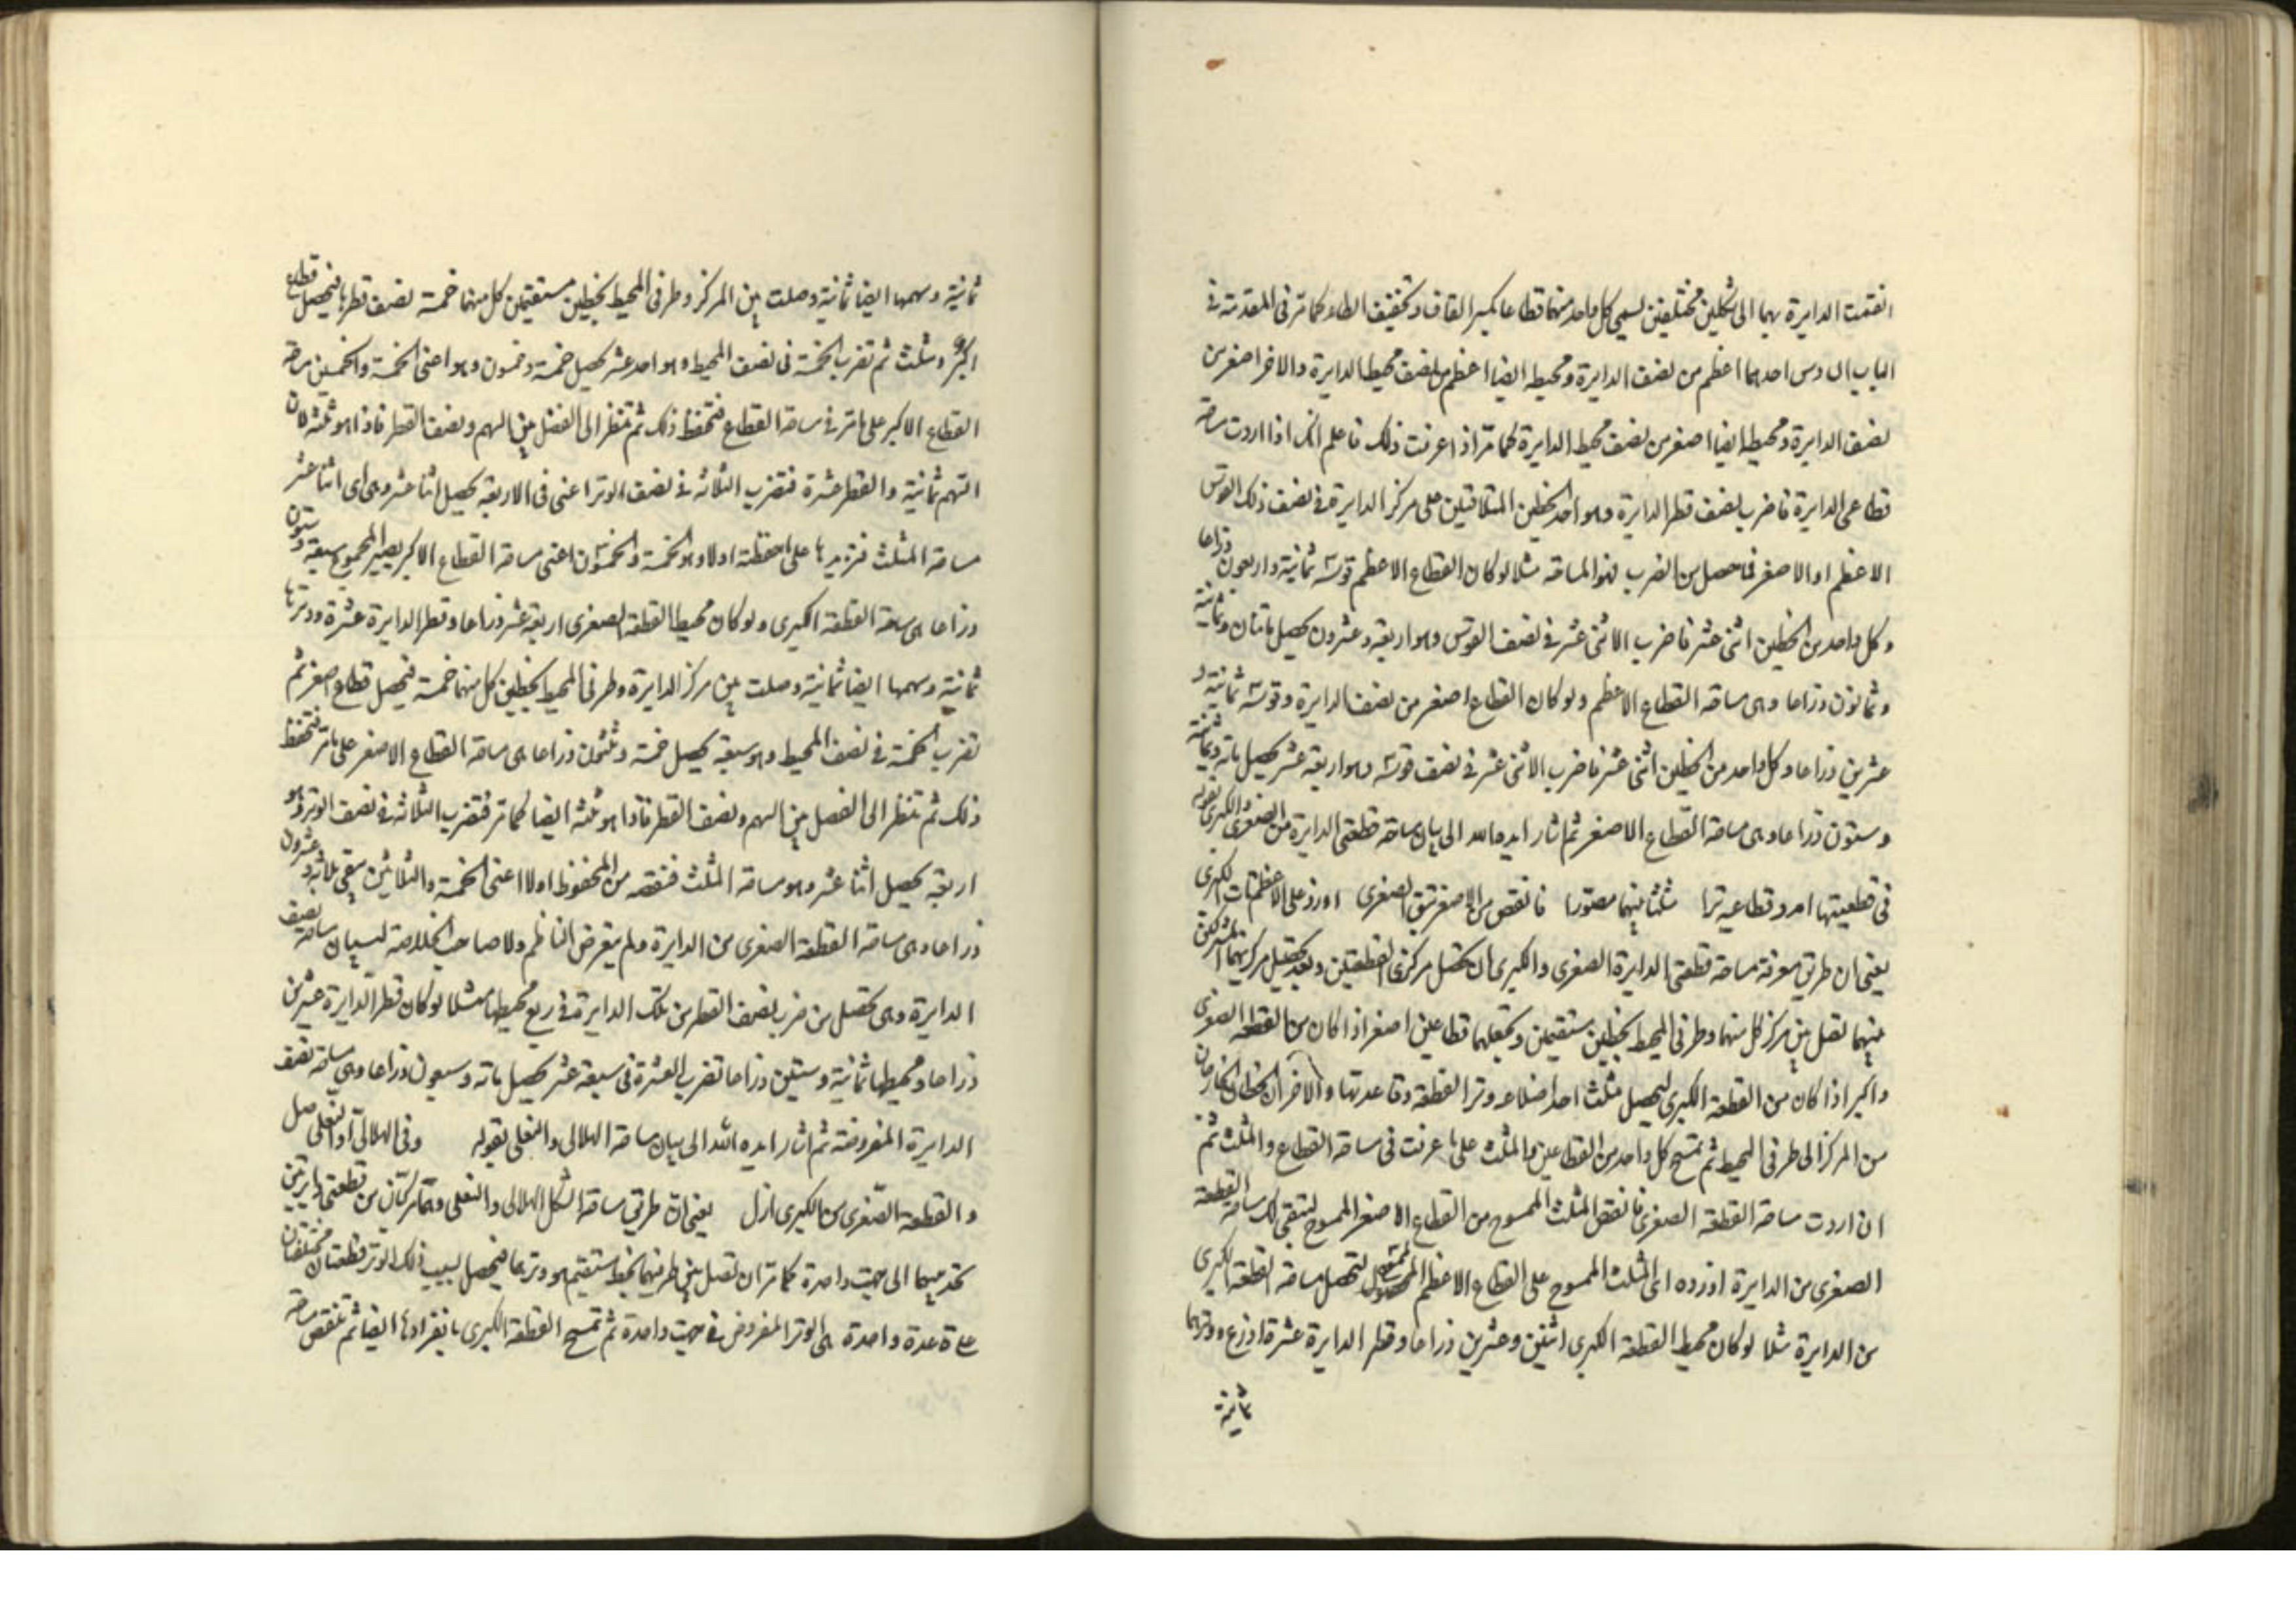 انقسمت الدايرة بهما الى شكلين مختلفين يسمى كل واحد منهما قطاعا بكسر القاف وتخفيف الطاء كما مر فى المقدمة فى
الباب السادس احدهما اعظم من نصف الدايرة ومحيطه ايضا اعظم من نصف محيط الدايرة والاخر اصغر من
نصف الدايرة ومحيطه ايضا اصغر من نصف محيط الدايرة كما مر اذا عرفت ذلك فاعلم انك اذا اردت مساحة
قطاعى الدايرة فاضرب نصف قطر الدايرة وهو احد الخطين المتلاقيين على مركز الدايرة فى نصف ذلك القوس
الاعظم او الاصغر فما حصل من الضرب فهو المساحة مثلا لو كان القطاع الاعظم قوسه ثمانية واربعون ذراعا
وكل واحد من الخطين اثنى عشر فاضرب الاثنى عشر فى نصف القوس وهو اربعة وعشرون يحصل مائتان وثمانية
وثمانون ذراعا وهى مساحة القطاع الاعظم ولو كان القطاع اصغر من نصف الدايرة وقوسه ثمانية و
عشرين ذراعا وكل واحد من الخطين اثنى عشر فاضرب الاثنى عشر فى نصف قوسه وهو اربعة عشر يحصل مائة وثمانية
وستون ذراعا وهى مساحة القطاع الاصغر ثم اشار ايده الله الى بيان مساحة قطعتى الدايرة من الصغرى والكبرى بقوله
فى قطعيتها امد وقطاعيه ترا مثلثا بينهما مصورا فانقص من الاصغر تبق الصغرى اوزد على الاعظم تات الكبرى
يعنى ان طريق معرفة مساحة قطعتى الدايرة الصغرى والكبرى ان تحصل مركزى القطعتين وبعد تحصيل مركزيهما المشتركين
بينهما تصل بين مركز كل منهما وطرفى المحيط بخطين مستقيمين وتجعلهما قطاعين اصغر اذا كان من القطعة الصغرى
واكبر اذا كان من القطعة الكبرى ليحصل مثلث احد اضلاعه وتر القطعة وقاعدتها والاخران الخطان الخارجان
من المركز الى طرفى المحيط ثم تمسح كل واحد من القطاعين والمثلث على ما عرفت فى مساحة القطاع والمثلث ثم
ان اردت مساحة القطعة الصغرى فانقص المثلث الممسوح من القطاع الاصغر الممسوح ليبقى لك مساحة القطعة
الصغرى من الدايرة اوزده اى المثلث الممسوح على القطاع الاعظم الممسوح لتحصل مساحة القطعة الكبرى
من الدايرة مثلا لو كان محيط القطعة الكبرى اثنين وعشرين ذراعا وقطر الدايرة عشرة اذرع ووترها
ثمانية
ثمانية وسهمها ايضا ثمانية وصلت بين المركز وطرفى المحيط بخطين مستقيمين كل منهما خمسة نصف قطرها فيحصل قطاع
اكبر ومثلث ثم تضرب الخمسة فى نصف المحيط وهو احد عشر يحصل خمسة وخمسون وهو اعنى الخمسة والخمسين مساحة
القطاع الاكبر على ما مر فى مساحة القطاع فتحفظ ذلك ثم تنظر الى الفضل بين السهم ونصف القطر فاذا هو ثلثة لان
السهم ثمانية والقطر عشرة فتضرب الثلاثة فى نصف الوتر اعنى فى الاربعة يحصل اثنا عشر وهى اى اثنا عشر
مساحة المثلث فتزيدها على ما حفظته اولا وهو الخمسة والخمسون اعنى مساحة القطاع الاكبر يصير المجموع سبعة وستون
ذراعا هى مساحة القطعة الكبرى ولو كان محيط القطعة الصغرى اربعة عشر ذراعا وقطر الدايرة عشرة ووترها
ثمانية وسهمها ايضا ثمانية وصلت بين مركز الدايرة وطرفى المحيط بخطين كل منهما خمسة فيحصل قطاع اصغر ثم
تضرب الخمسة فى نصف المحيط وهو سبعة يحصل خمسة وثلثون ذراعا هى مساحة القطاع الاصغر على ما مر فتحفظ
ذلك ثم تنظر الى الفضل بين السهم ونصف القطر فاذا هو ثلثة ايضا كما مر فتضرب الثلاثة فى نصف الوتر وهو
اربعة يحصل اثنا عشر وهو مساحة المثلث فتنقصه من المحفوظ اولا اعنى الخمسة والثلاثين يبقى ثلاثة وعشرون
ذراعا وهى مساحة القطعة الصغرى من الدايرة ولم يتعرض الناظم ولا صاحب الخلاصة لبيان مساحة نصف
الدايرة وهى تحصل من ضرب نصف القطر من تلك الدايرة فى ربع محيطها مثلا لو كان قطر الدايرة عشرين
ذراعا ومحيطها ثمانية وستين ذراعا تضرب العشرة فى سبعة عشر يحصل مائة وسبعون ذراعا وهى مساحة نصف
الدايرة المفروضة ثم اشار ايده الله الى بيان مساحة الهلالى والنعلى بقوله وفى الهلالى او النعلى صل
والقطعة الصغرى من الكبرى ازل يعنى ان طريق مساحة الشكل الهلالى والنعلى وهما مركبان من قطعتى دايرتين
تحديبهما الى جهة واحدة كما مر ان تصل بين طرفيهما بخط مستقيم هو وترهما فيحصل بسبب ذلك الوتر قطعتان مختلفتان
على قاعدة واحدة هى الوتر المفروض فى جهة واحدة ثم تمسح القطعة الكبرى بانفرادها ايضا ثم تنقص مساحة